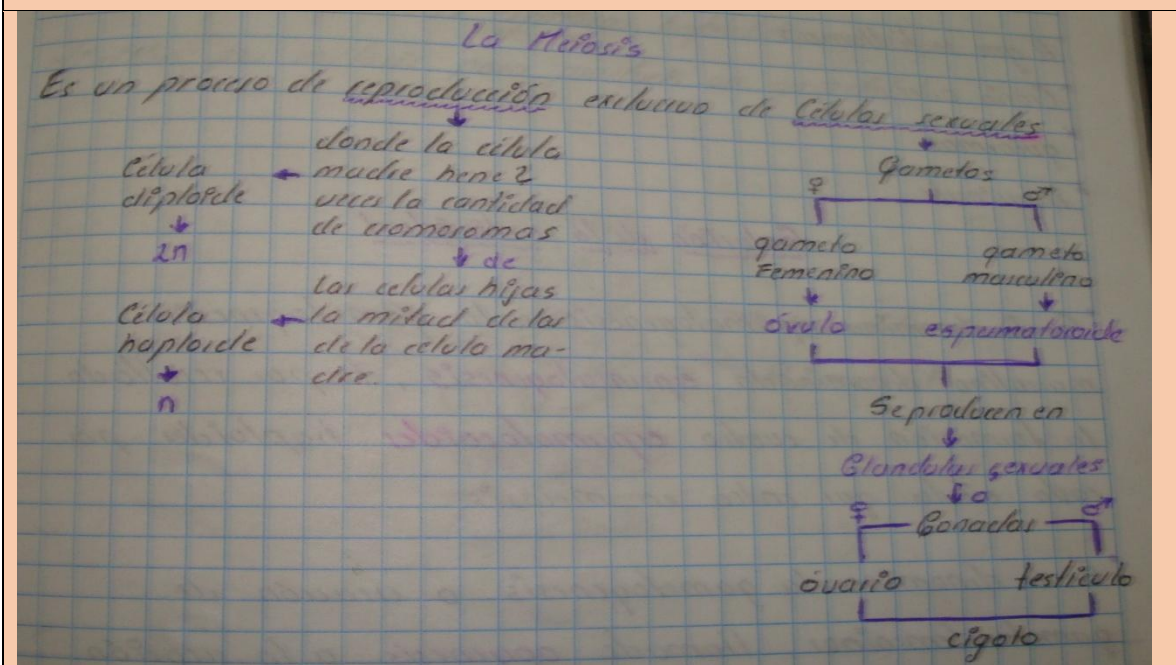 La Meiosis
Es un proceso de reproducción exclusivo de Células sexuales
donde la célula
madre tiene 2
veces la cantidad
de cromosomas
Célula
diploide
2n
de
las celulas hijas
la mitad de las
de la celula ma-
dre.
Célula
haploide
n
Gametos
♀ ♂
gameto
Femenino
gameto
masculino
óvulo
espermatozoide
Se producen en
Glandulas sexuales
o
♀ Gonadas ♂
óvario
testiculo
cigoto